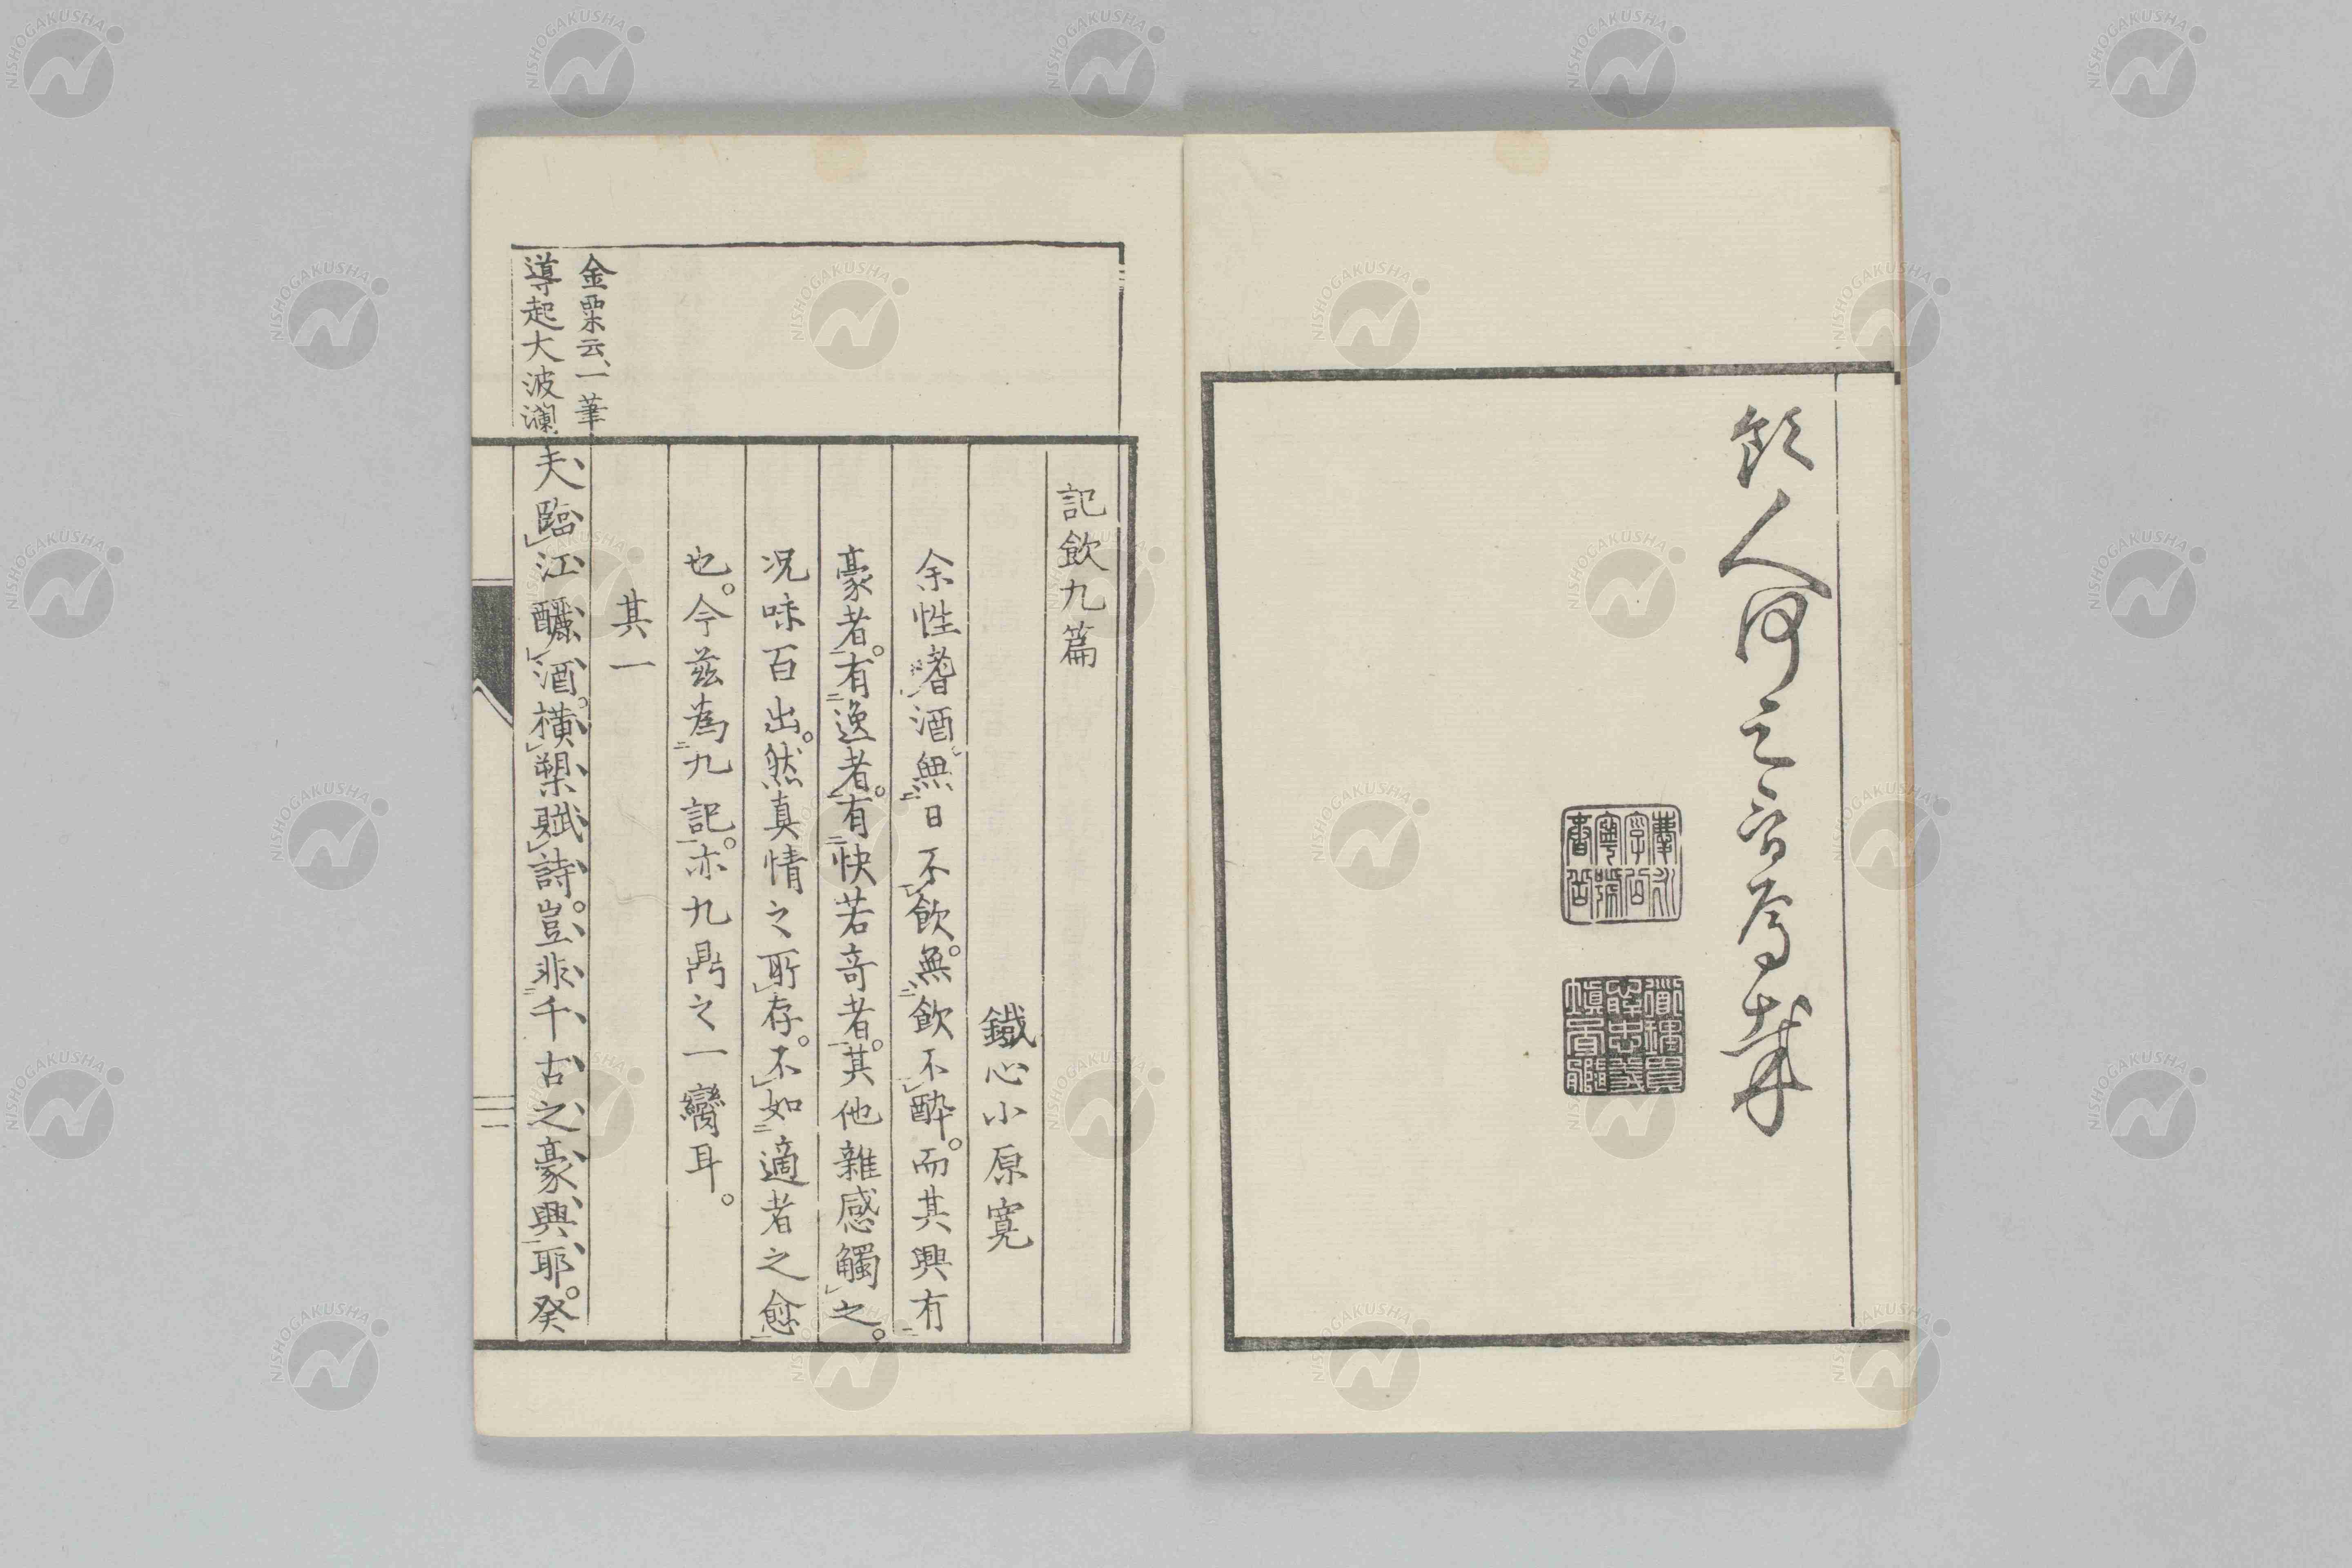 飲人何之音寫幸
記飲九篇
鐵心小原寬
余性耆酒無日不飲。無飲不醉。而其興有
豪者。有逸者。有快若奇者。其他雜感觸之。
况味百出。然真情之所存。不如適者之愈
也。今茲為九記。亦九鼎之一臠耳。
其一
夫臨江釃酒。橫槊賦詩。豈非千古之豪興耶。癸
金粟云、一筆
導起大波瀾
二
NISHOGAKUSHA